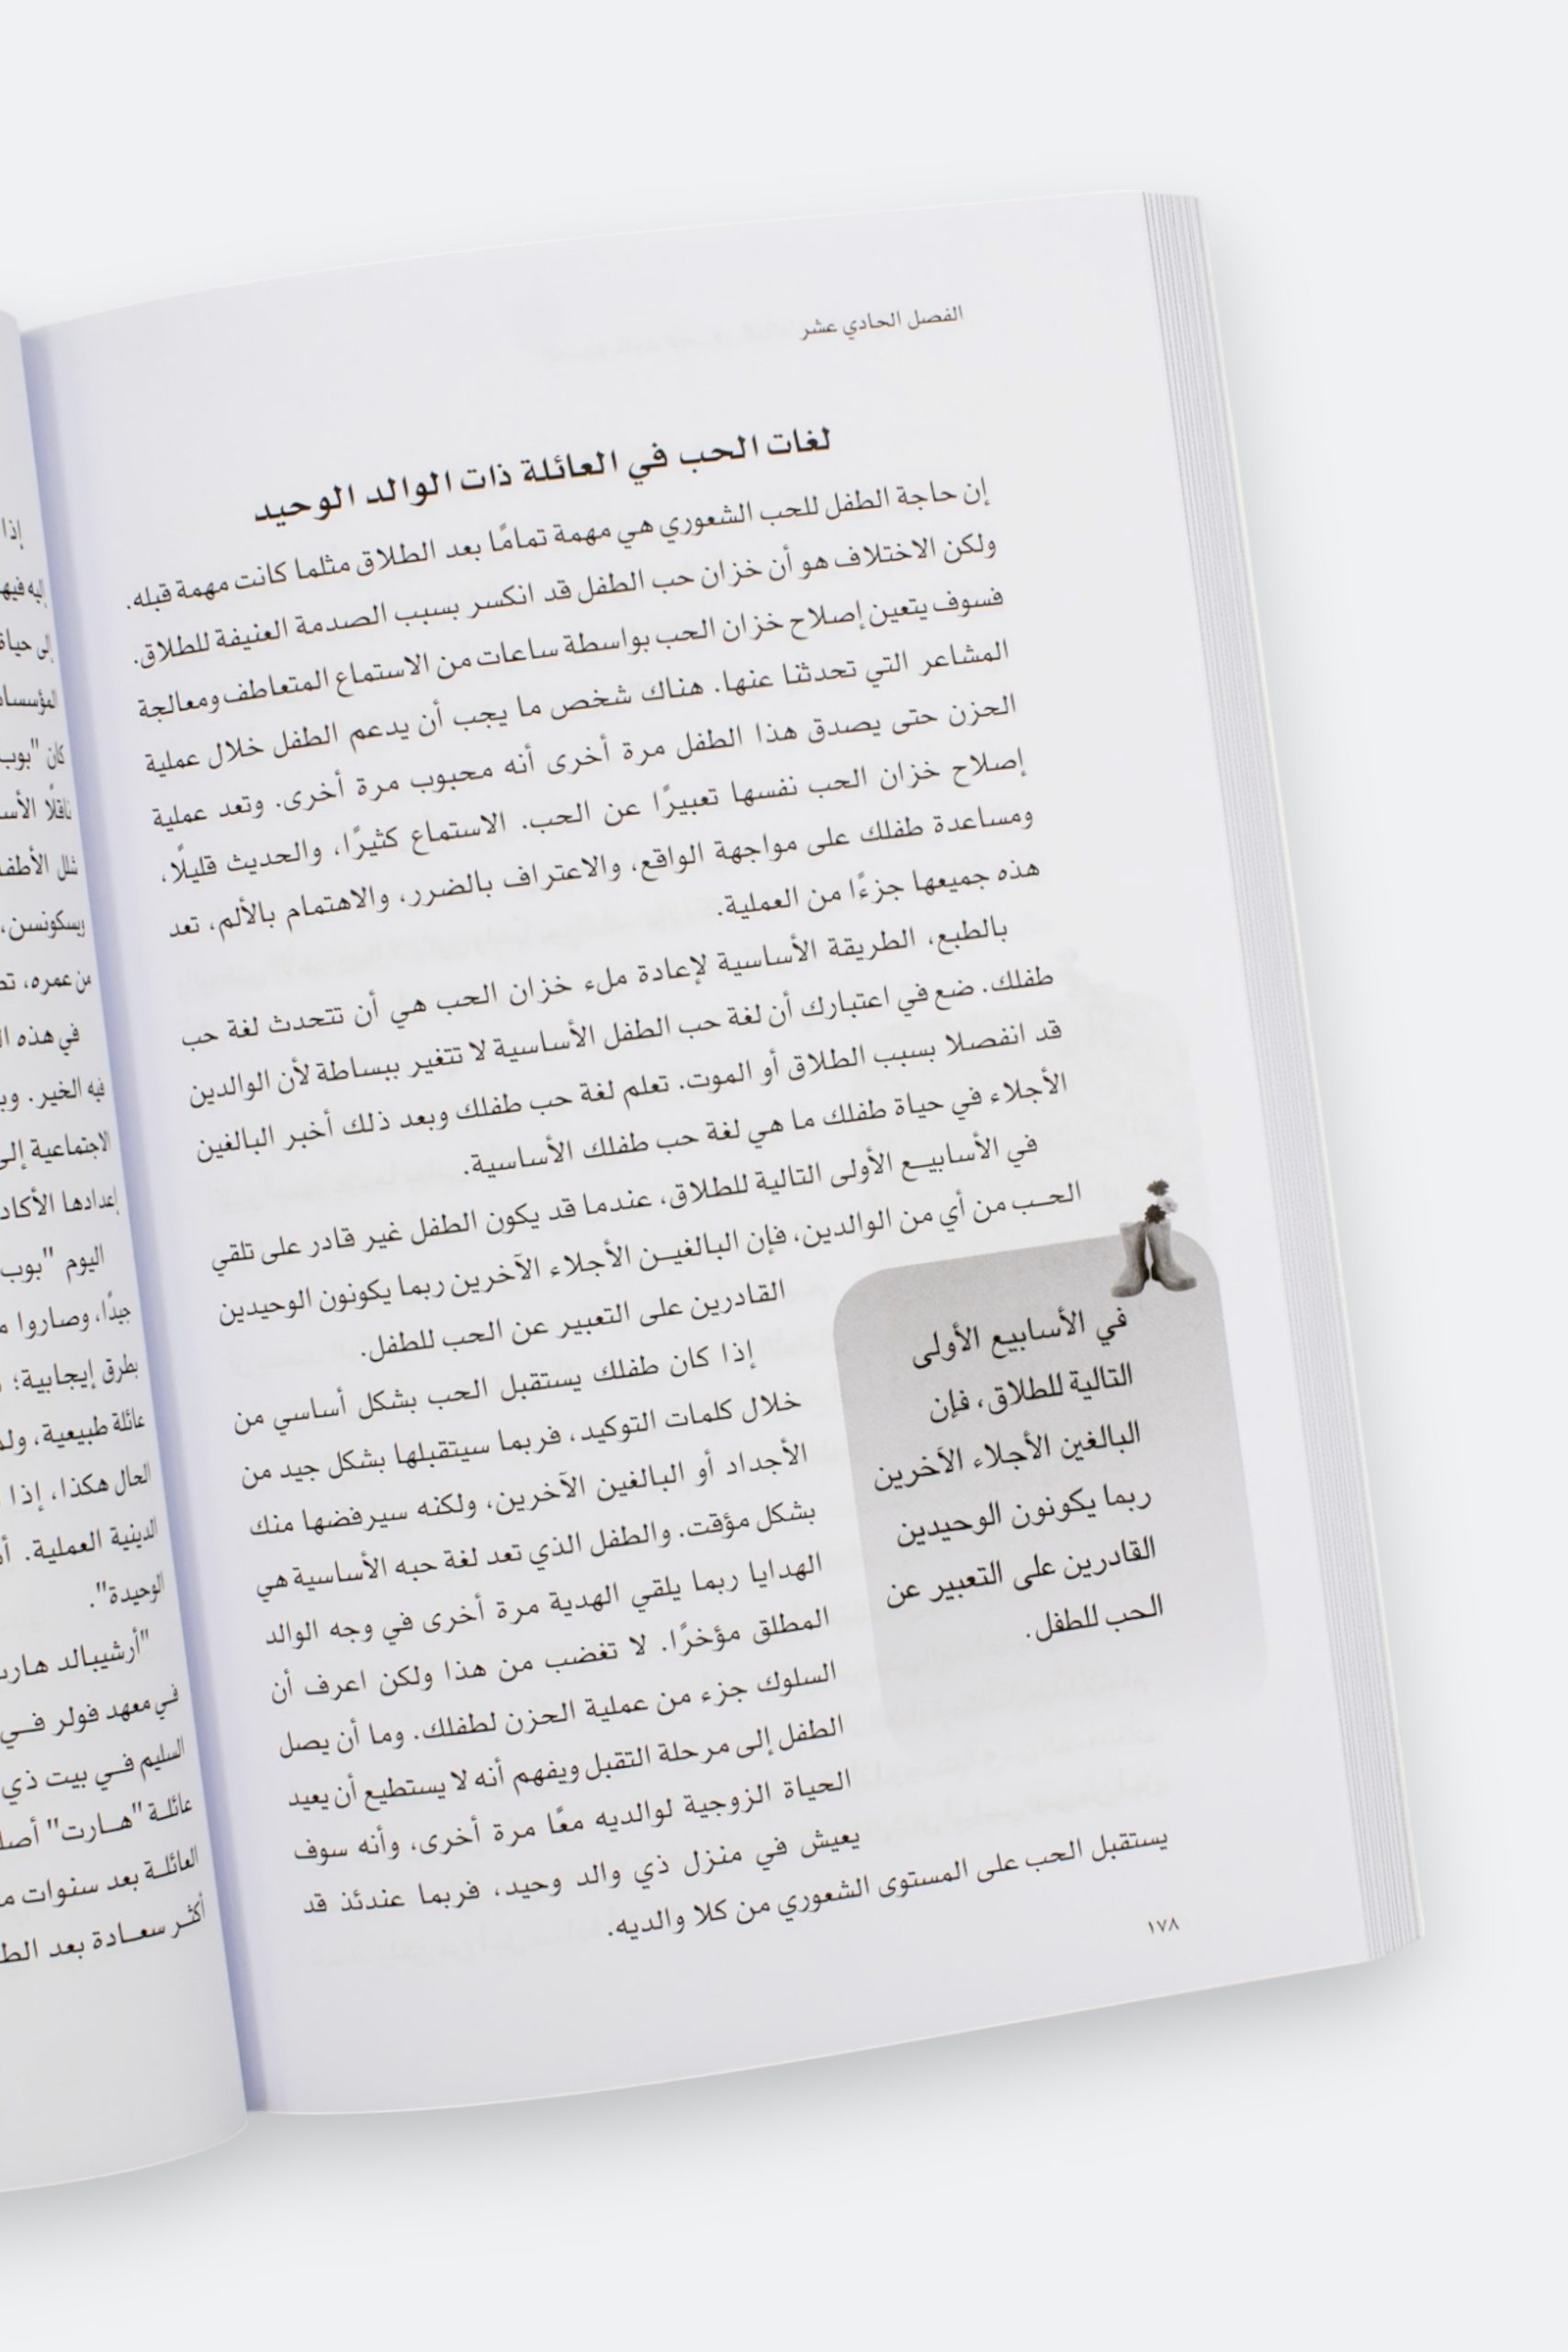 الفصل الحادي عشر
لغات الحب في العائلة ذات الوالد الوحيد
إن حاجة الطفل للحب الشعوري هي مهمة تمامًا بعد الطلاق مثلما كانت مهمة قبله.
ولكن الاختلاف هو أن خزان حب الطفل قد انكسر بسبب الصدمة العنيفة للطلاق.
فسوف يتعين إصلاح خزان الحب بواسطة ساعات من الاستماع المتعاطف ومعالجة
المشاعر التي تحدثنا عنها. هناك شخص ما يجب أن يدعم الطفل خلال عملية
الحزن حتى يصدق هذا الطفل مرة أخرى أنه محبوب مرة أخرى. وتعد عملية
إصلاح خزان الحب نفسها تعبيرًا عن الحب. الاستماع كثيرًا، والحديث قليلًا،
ومساعدة طفلك على مواجهة الواقع، والاعتراف بالضرر، والاهتمام بالألم، تعد
هذه جميعها جزءًا من العملية.
بالطبع، الطريقة الأساسية لإعادة ملء خزان الحب هي أن تتحدث لغة حب
طفلك. ضع في اعتبارك أن لغة حب الطفل الأساسية لا تتغير ببساطة لأن الوالدين
قد انفصلا بسبب الطلاق أو الموت. تعلم لغة حب طفلك وبعد ذلك أخبر البالغين
الأجلاء في حياة طفلك ما هي لغة حب طفلك الأساسية.
في الأسابيع الأولى التالية للطلاق، عندما قد يكون الطفل غير قادر على تلقي
الحب من أي من الوالدين، فإن البالغين الأجلاء الآخرين ربما يكونون الوحيدين
القادرين على التعبير عن الحب للطفل.
إذا كان طفلك يستقبل الحب بشكل أساسي من
خلال كلمات التوكيد، فربما سيتقبلها بشكل جيد من
الأجداد أو البالغين الآخرين، ولكنه سيرفضها منك
بشكل مؤقت. والطفل الذي تعد لغة حبه الأساسية هي
الهدايا ربما يلقي الهدية مرة أخرى في وجه الوالد
المطلق مؤخرًا. لا تغضب من هذا ولكن اعرف أن
السلوك جزء من عملية الحزن لطفلك. وما أن يصل
الطفل إلى مرحلة التقبل ويفهم أنه لا يستطيع أن يعيد
الحياة الزوجية لوالديه معًا مرة أخرى، وأنه سوف
يعيش في منزل ذي والد وحيد، فربما عندئذ قد
يستقبل الحب على المستوى الشعوري من كلا والديه.
في الأسابيع الأولى
التالية للطلاق، فإن
البالغين الأجلاء الآخرين
ربما يكونون الوحيدين
القادرين على التعبير عن
الحب للطفل.
١٧٨
إذا
إليه فيه
إلى حياة
كان "بوب
ناقلًا
ويسكونسن،
من عمره،
في هذه
فيه الخير.
الاجتماعية إلى
إعدادها
اليوم "بوب
جيدًا، وصاروا
بطرق إيجابية؛
عائلة طبيعية،
الحال هكذا، إذا
الدينية العملية.
الوحيدة".
"أرشيبالد
في معهد فولر في
السليم في بيت ذي
عائلة "هارت"
العائلة بعد سنوات
أكثر سعادة بعد